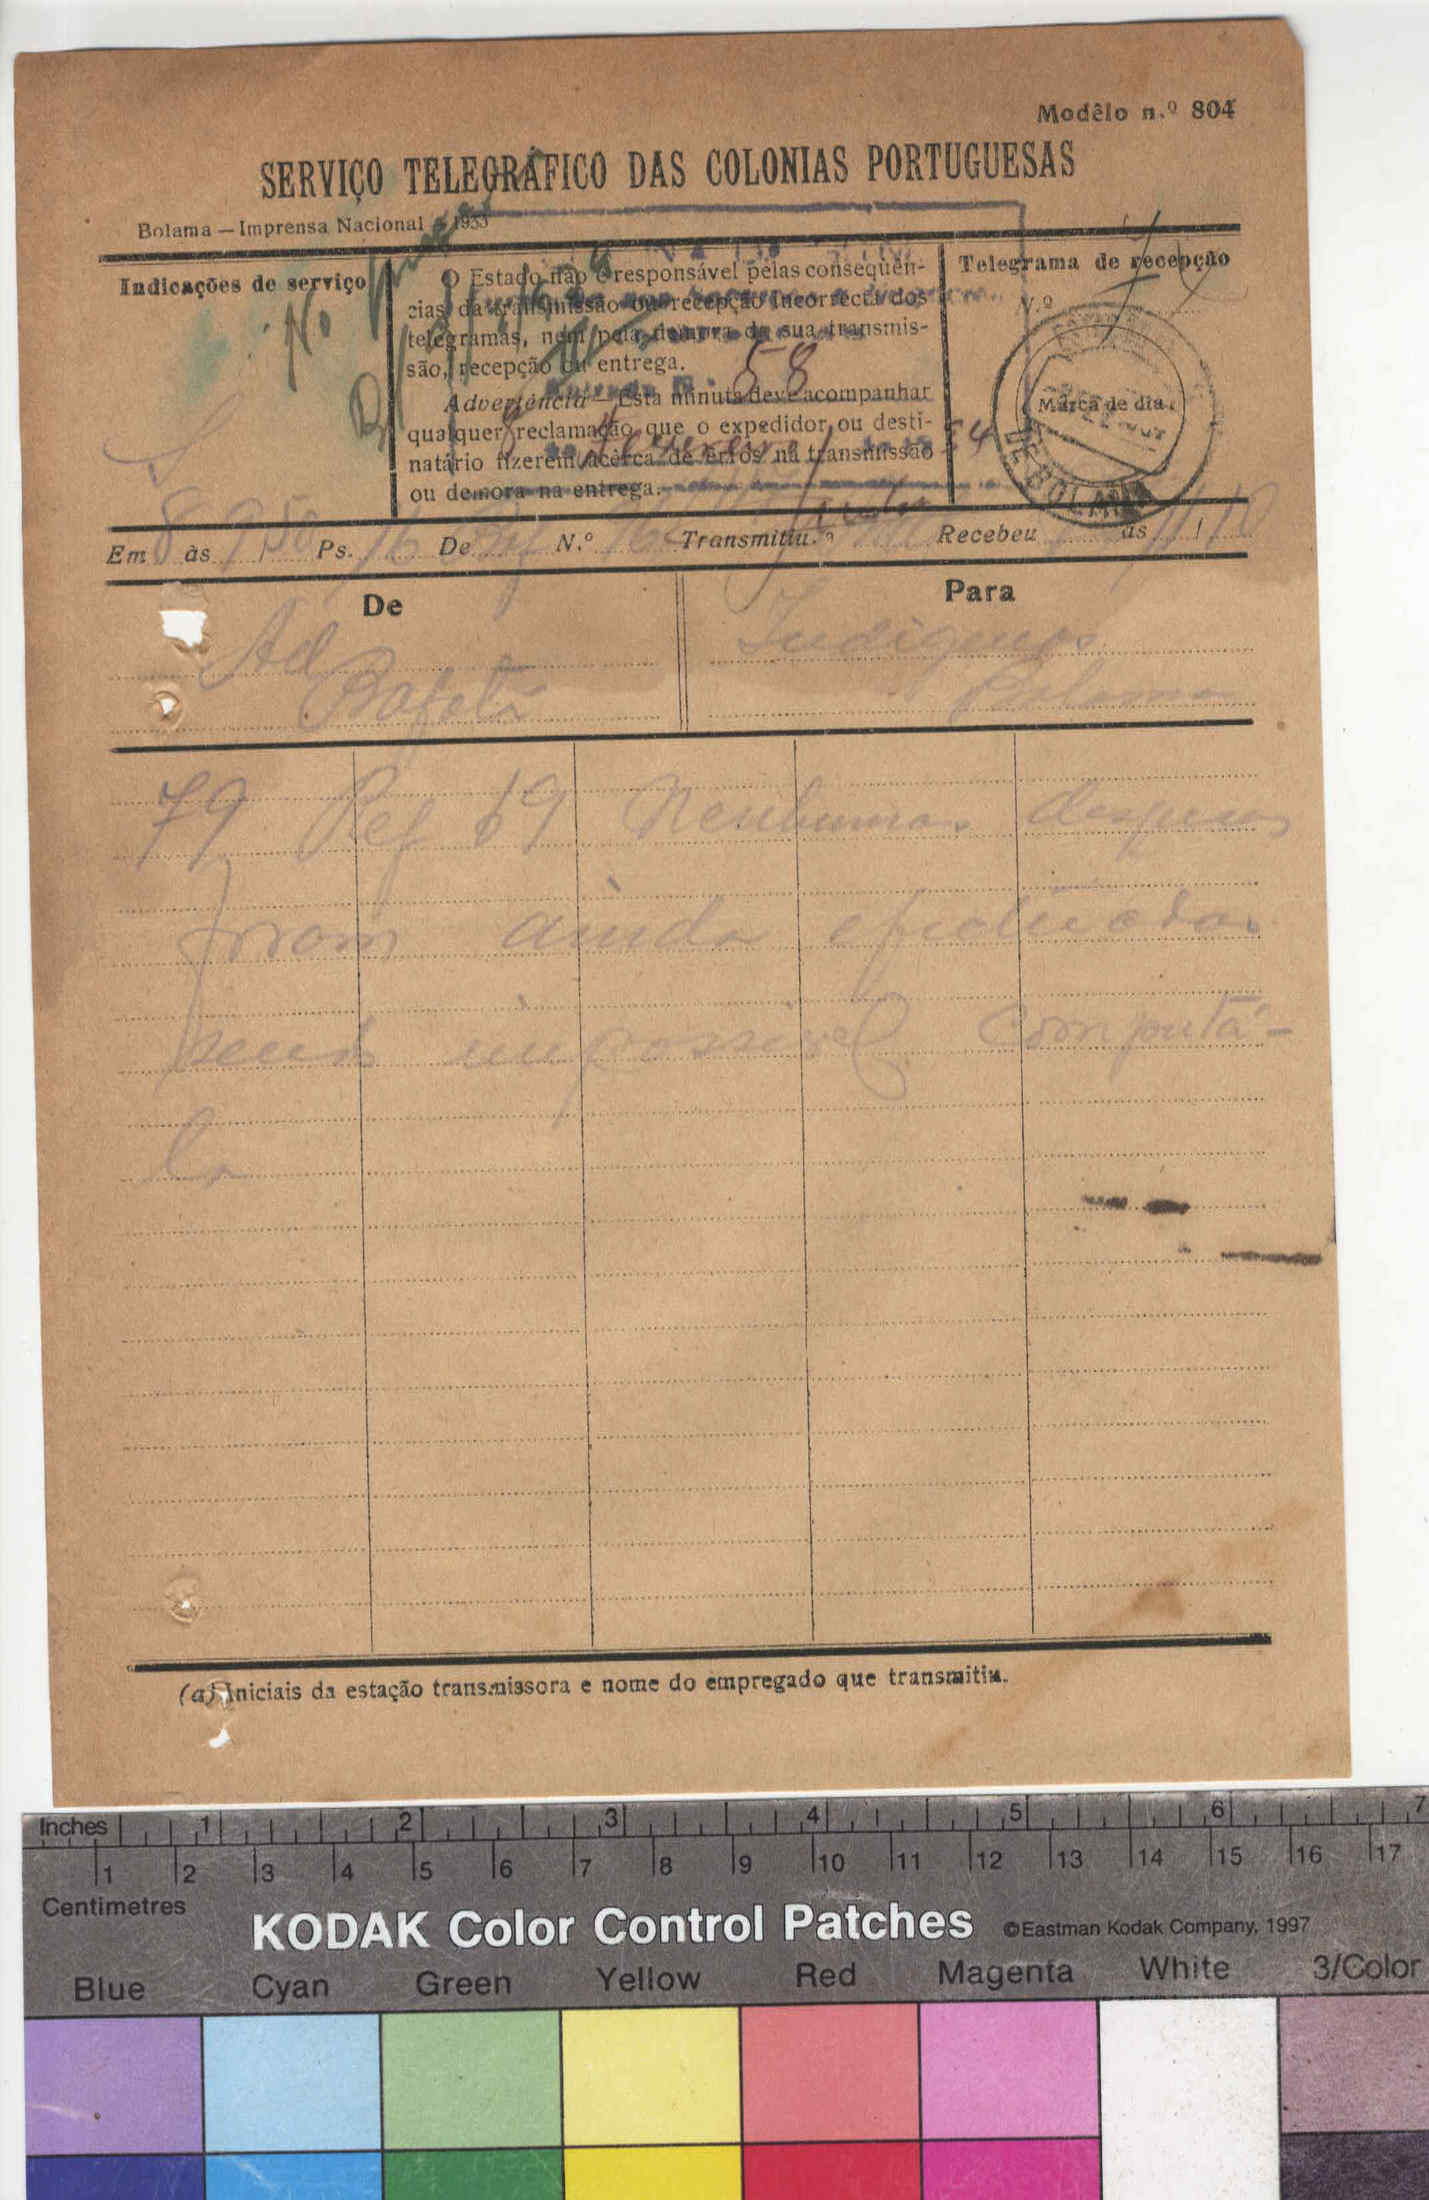 Modêlo n.º 804
SERVIÇO TELEGRÁFICO DAS COLONIAS PORTUGUESAS
Bolama — Imprensa Nacional — 1933
Indicações de serviço
O Estado não é responsável pelas consequên-
cias da transmissão ou recepção incorrecta dos
telegramas, nem pela demora da sua transmis-
são, recepção ou entrega.
Advertência — Esta minuta deve acompanhar
qualquer reclamação que o expedidor ou desti-
natário fizerem àcêrca de erros na transmissão
ou demora na entrega.
58
Telegrama de recepção
N.º
Marca de dia
DE BOLAMA
Em 8 às 950 Ps. 16 De N.º Transmitiu Recebeu às 11/10
De
Para
Ad
Bafatá
Indigenas
Bolama
79 Ref 69 Nenhumas despesas
foram ainda
sendo impossivel computá-
la
(a) Iniciais da estação transmissora e nome do empregado que transmitiu.
Inches 1 2 3 4 5 6 7
1 2 3 4 5 6 7 8 9 10 11 12 13 14 15 16 17
Centimetres
KODAK Color Control Patches ©Eastman Kodak Company, 1997
Blue Cyan Green Yellow Red Magenta White 3/Color